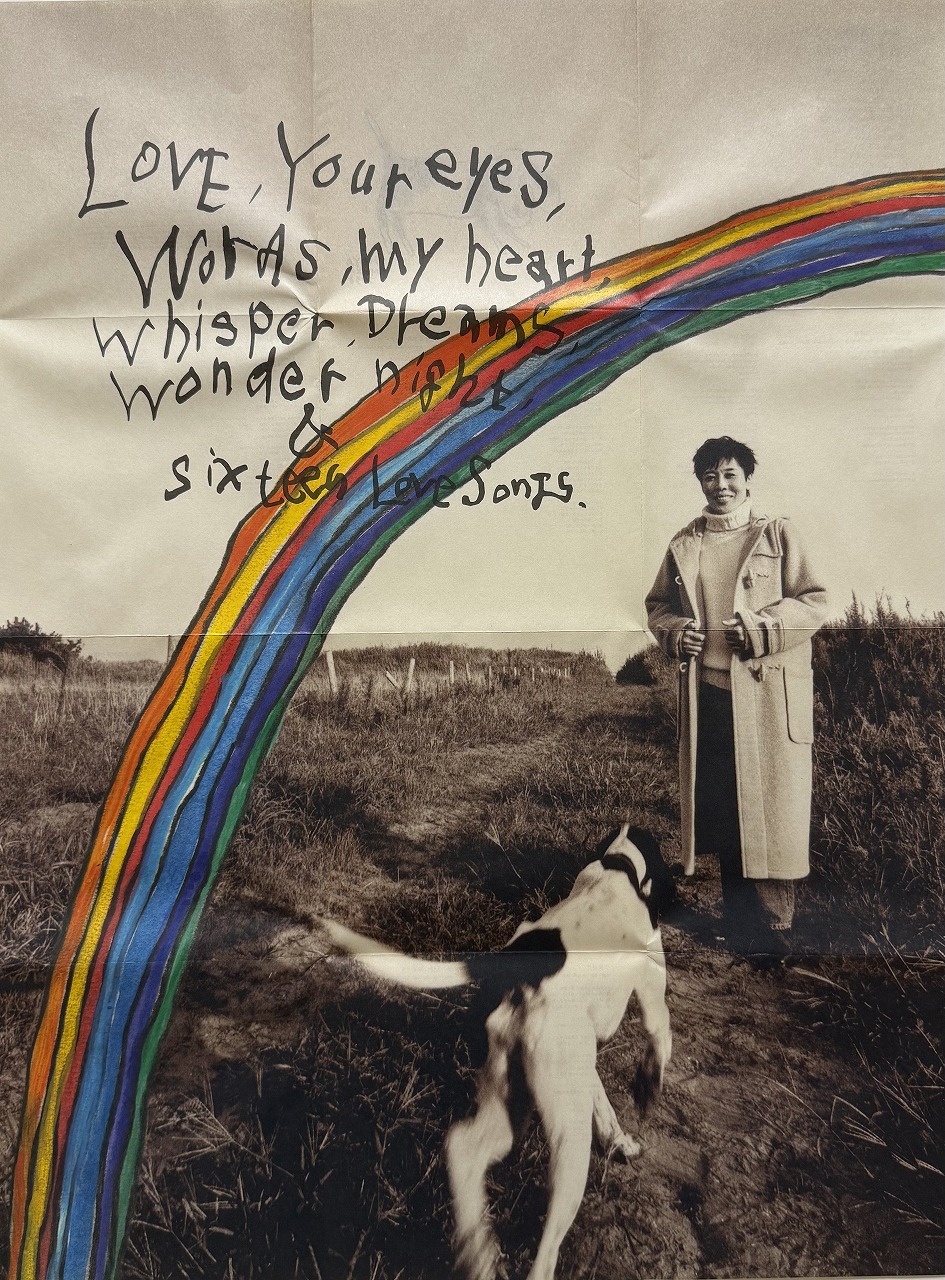 Love, Your eyes,
Words, my heart,
whisper, Dreams,
wonder night,
&
sixteen Love Songs.